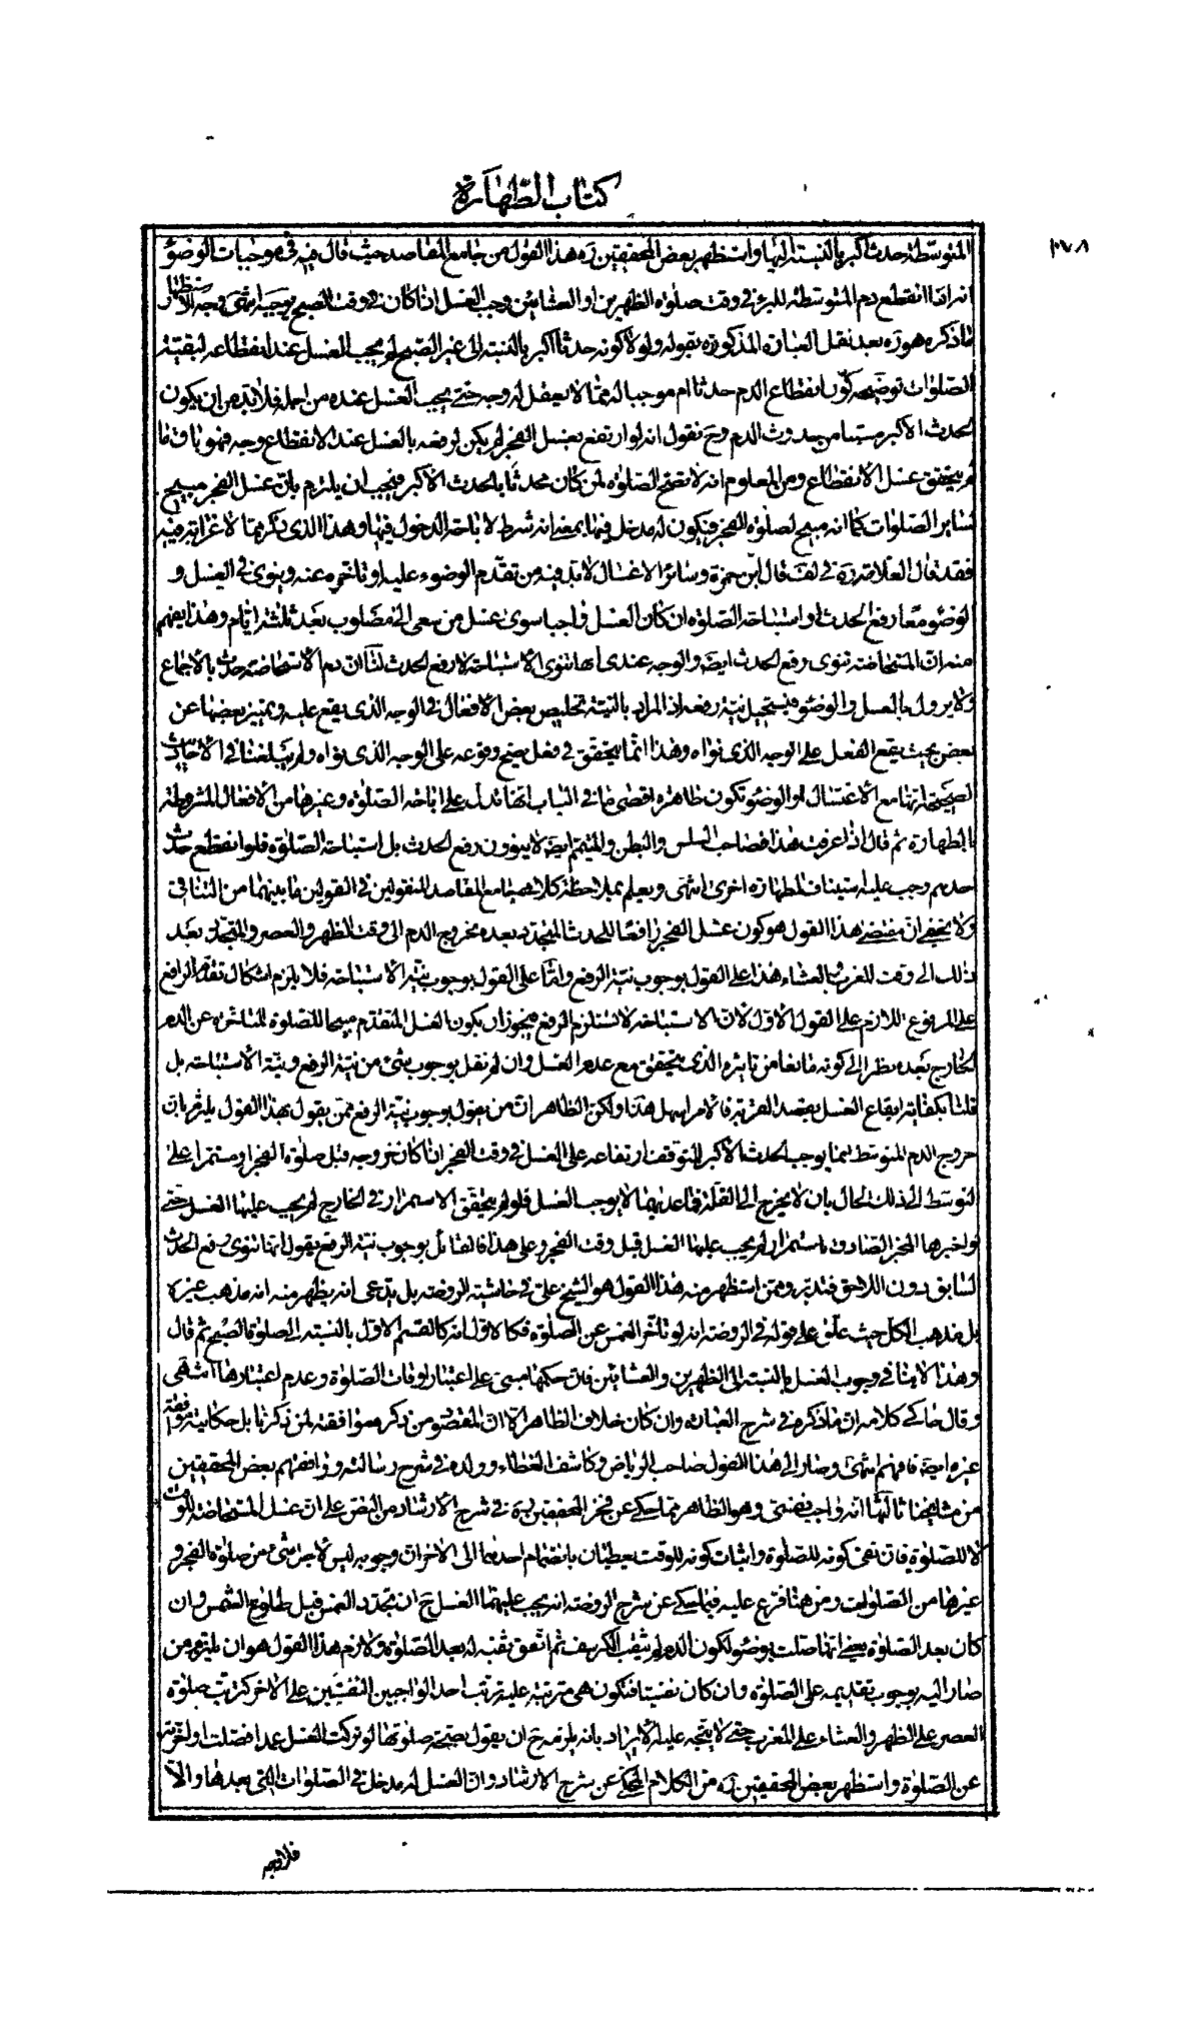 كتاب الطهارة
٣٧٨
المتوسطة حدث اكبر بالنسبة اليها واستظهر بعض المحققين ره هذا القول من جامع المقاصد حيث قال فيه في موجبات الوضوء
انه اذا انقطع دم المتوسطة للبرء في وقت صلوة الظهرين او العشائين وجب الغسل ان كان في وقت الصبح يوجبه انتهى وجه الاستظهار
ما ذكره هو ره بعد نقل العبارة المذكورة بقوله ولولا كونه حدثا اكبر بالنسبة الى غير الصبح لم يجب الغسل عند انقطاعه لبقية
الصلوات توضيحه كون انقطاع الدم حدثا ام موجبا له مما لا يعقل له وجه حتى يجب الغسل عنده من اجله فلا بد من ان يكون
الحدث الاكبر مسببا من حدوث الدم وح نقول انه لو ارتفع بغسل الفجر لم يكن لرفعه بالغسل عند الانقطاع وجه فهو باق ما
لم يتحقق غسل الانقطاع ومن المعلوم انه لا تصح الصلوة لمن كان محدثا بالحدث الاكبر فيجب ان يلتزم بان غسل الفجر مبيح
لسائر الصلوات كما انه مبيح لصلوة الفجر فيكون له مدخل فيها بمعنى انه شرط لاباحة الدخول فيها وهذا الذي ذكر مما لا غرابة فيه
فقد قال العلامة ره في لف قال ابن حمزة وسائر الاغسال لا بد فيه من تقدم الوضوء عليه او تاخره عنه وينوي في الغسل و
الوضوء معا رفع الحدث او استباحة الصلوة ان كان الغسل واجبا سوى غسل من سعى الى مصلوب بعد ثلثة ايام وهذا يفهم
منه ان المستحاضة تنوى رفع الحدث ايضا والوجه عندي انها تنوى الاستباحة لا رفع الحدث لنا ان دم الاستحاضة حدث بالاجماع
ولا يزول بالغسل والوضوء فيستحيل نية رفعه اذ المراد بالنية تخليص بعض الافعال في الوجه الذي يقع عليه وتمييز بعضها عن
بعض بحيث يقع الفعل على الوجه الذي نواه وهذا انما يتحقق في فعل يصح وقوعه على الوجه الذي نواه ولم يبلغنا في الاحاديث
الصحيحة انها مع الاغتسال او الوضوء تكون طاهرا اقصى ما في الباب انها تدل على اباحة الصلوة وغيرها من الافعال المشروطة
بالطهارة ثم قال اذا عرفت هذا فصاحب السلس والبطن والمتيمم ايضا لا ينوون رفع الحدث بل استباحة الصلوة فلو انقطع حدث
احدهم وجب عليه استيناف الطهارة اخرى انتهى ويعلم بملاحظة كلام جامع المقاصد المنقولين في القولين ما بينهما من التنافي
ولا يخفى ان مقتضى هذا القول هو كون غسل الفجر رافعا للحدث المتجدد بعده بخروج الدم الى وقت الظهر والعصر والمتجدد بعد
ذلك الى وقت المغرب والعشاء هذا على القول بوجوب نية الرفع واما على القول بوجوب نية الاستباحة فلا يلزم اشكال تقدم الرافع
على المرفوع اللازم على القول الاول لان الاستباحة لا تستلزم الرفع فيجوز ان يكون الغسل المتقدم مبيحا للصلوة المتاخرة عن الدم
الخارج بعده نظرا الى كونه مانعا من تاثيره الذي يتحقق مع عدم الغسل وان لم نقل بوجوب شئ من نية الرفع ونية الاستباحة بل
قلنا بكفاية ايقاع الغسل بقصد القربة فالامر اسهل هذا ولكن الظاهر ان من يقول بوجوب نية الرفع ممن يقول بهذا القول يلتزم بان
خروج الدم المتوسط انما يوجب الحدث الاكبر المتوقف ارتفاعه على الغسل في وقت الفجر ان كان خروجه قبل صلوة الفجر او مستمرا على
التوسط الى ذلك الحال بان لا يخرج الى القلة فما عداهما لا يوجب الغسل فلو لم يتحقق الاستمرار في الخارج لم يجب عليها الغسل حتى
لو اخبرها المخبر الصادق باستمراره لم يجب عليها الغسل قبل وقت الفجر وعلى هذا فالقائل بوجوب نية الرفع يقول انها تنوى رفع الحدث
السابق دون اللاحق فتدبر وممن استظهر منه هذا القول هو الشيخ على في حاشية الروضة بل يدعى انه يظهر منه انه مذهب غيره
بل مذهب الكل حيث علق على قوله في الروضة انه لو تاخر الغمس عن الصلوة فكالاول انه كالقسم الاول بالنسبة الى صلوة الصبح ثم قال
وهذا لا ينافي وجوب الغسل بالنسبة الى الظهرين والعشائين فان حكمها مبني على اعتبار اوقات الصلوة وعدم اعتبارها انتهى
وقال حاكي كلامه ان ما ذكره في شرح العبارة وان كان خلاف الظاهر الا ان المقصود من ذكره موافقته لمن ذكرنا بل حكاية موافقة
غيره اجمع فافهم انتهى وصار الى هذا القول صاحب الرياض وكاشف الغطاء وولده في شرح رسالته ووافقهم بعض المحققين
من مشايخنا ثالثها انه واجب نفسي وهو الظاهر مما حكى عن فخر المحققين ره في شرح الارشاد من النص على ان غسل المستحاضة للوقت
لا للصلوة فان نفى كونه للصلوة واثبات كونه للوقت يعطيان بانضمام احدهما الى الاخر ان وجوبه ليس لاجل شئ من صلوة الفجر و
غيرها من الصلوات ومن هنا فرع عليه فيما حكى عن شرح الروضة انه يجب عليها الغسل ح ان تجدد الغمس قبل طلوع الشمس وان
كان بعد الصلوة يعني انها صلت بوضوء لكون الدم لم يثقب الكرسف ثم اتفق ثقبه له بعد الصلوة ولازم هذا القول هو ان يلتزم من
صار اليه بوجوب تقديمه على الصلوة وان كان نفسيا فتكون هي مترتبة عليه ترتب احد الواجبين النفسيين على الاخر كترتب صلوة
العصر على الظهر والعشاء على المغرب حتى لا يتجه عليه الايراد بانه يلزمه ح ان يقول بصحة صلوتها لو تركت الغسل عمدا فصلت او اخرته
عن الصلوة واستظهر بعض المحققين ره من الكلام المحكى عن شرح الارشاد وان الغسل له مدخل في الصلوات التي بعدها والا
فلا وجه